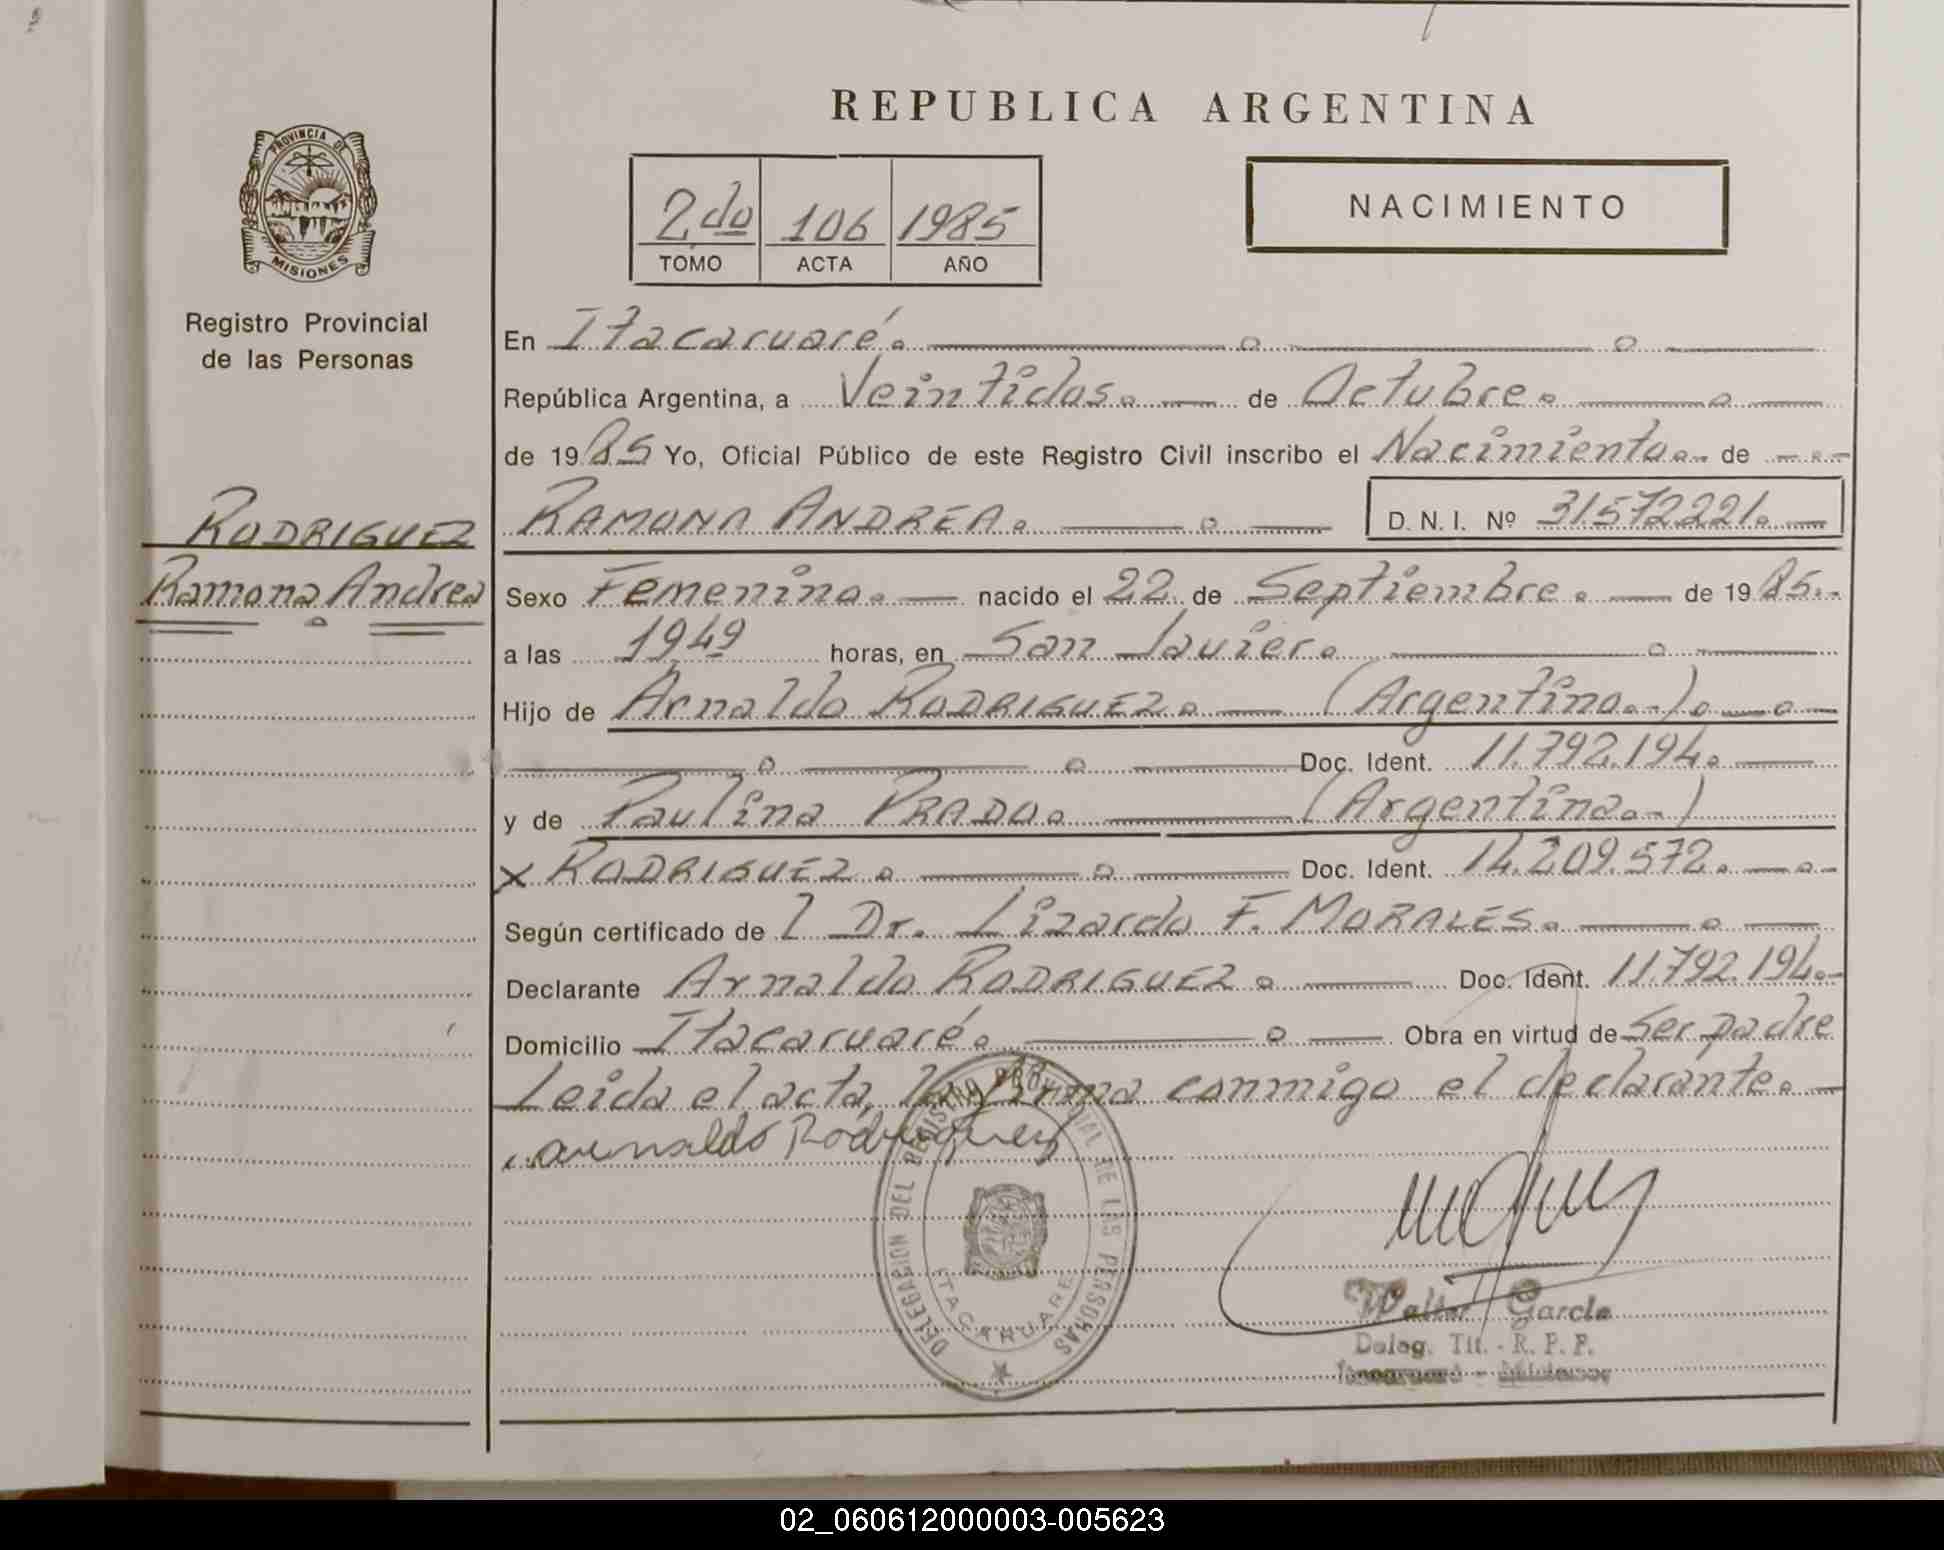 REPUBLICA ARGENTINA
PROVINCIA DE MISIONES
Registro Provincial
de las Personas
2do 106 1985
TOMO ACTA AÑO
NACIMIENTO
En Itacaruaré.
República Argentina, a Veintidos. de Octubre.
de 1985 Yo, Oficial Público de este Registro Civil inscribo el Nacimiento. de
RODRIGUEZ
Ramona Andrea
RAMONA ANDREA. D.N.I. Nº 31572221.
Sexo Femenino. nacido el 22 de Septiembre. de 1985.-
a las 1949 horas, en San Javier.
Hijo de Arnaldo RODRIGUEZ. (Argentino.-).
Doc. Ident. 11.792.194.
y de Paulina PRADO. (Argentina.-)
x RODRIGUEZ. Doc. Ident. 14.209.572.
Según certificado de l Dr. Lizardo F. MORALES.
Declarante Arnaldo RODRIGUEZ. Doc. Ident. 11.792.194.-
Domicilio Itacaruaré. Obra en virtud de Ser padre
Leida el acta, la firma conmigo el declarante.
arnaldo Rodriguez
DELEGACION DEL REGISTRO PROVINCIAL DE LAS PERSONAS
ITACARUARE
Walter Garcia
Deleg. Tit. - R. P. P.
Itacaruaré - Misiones
02_060612000003-005623